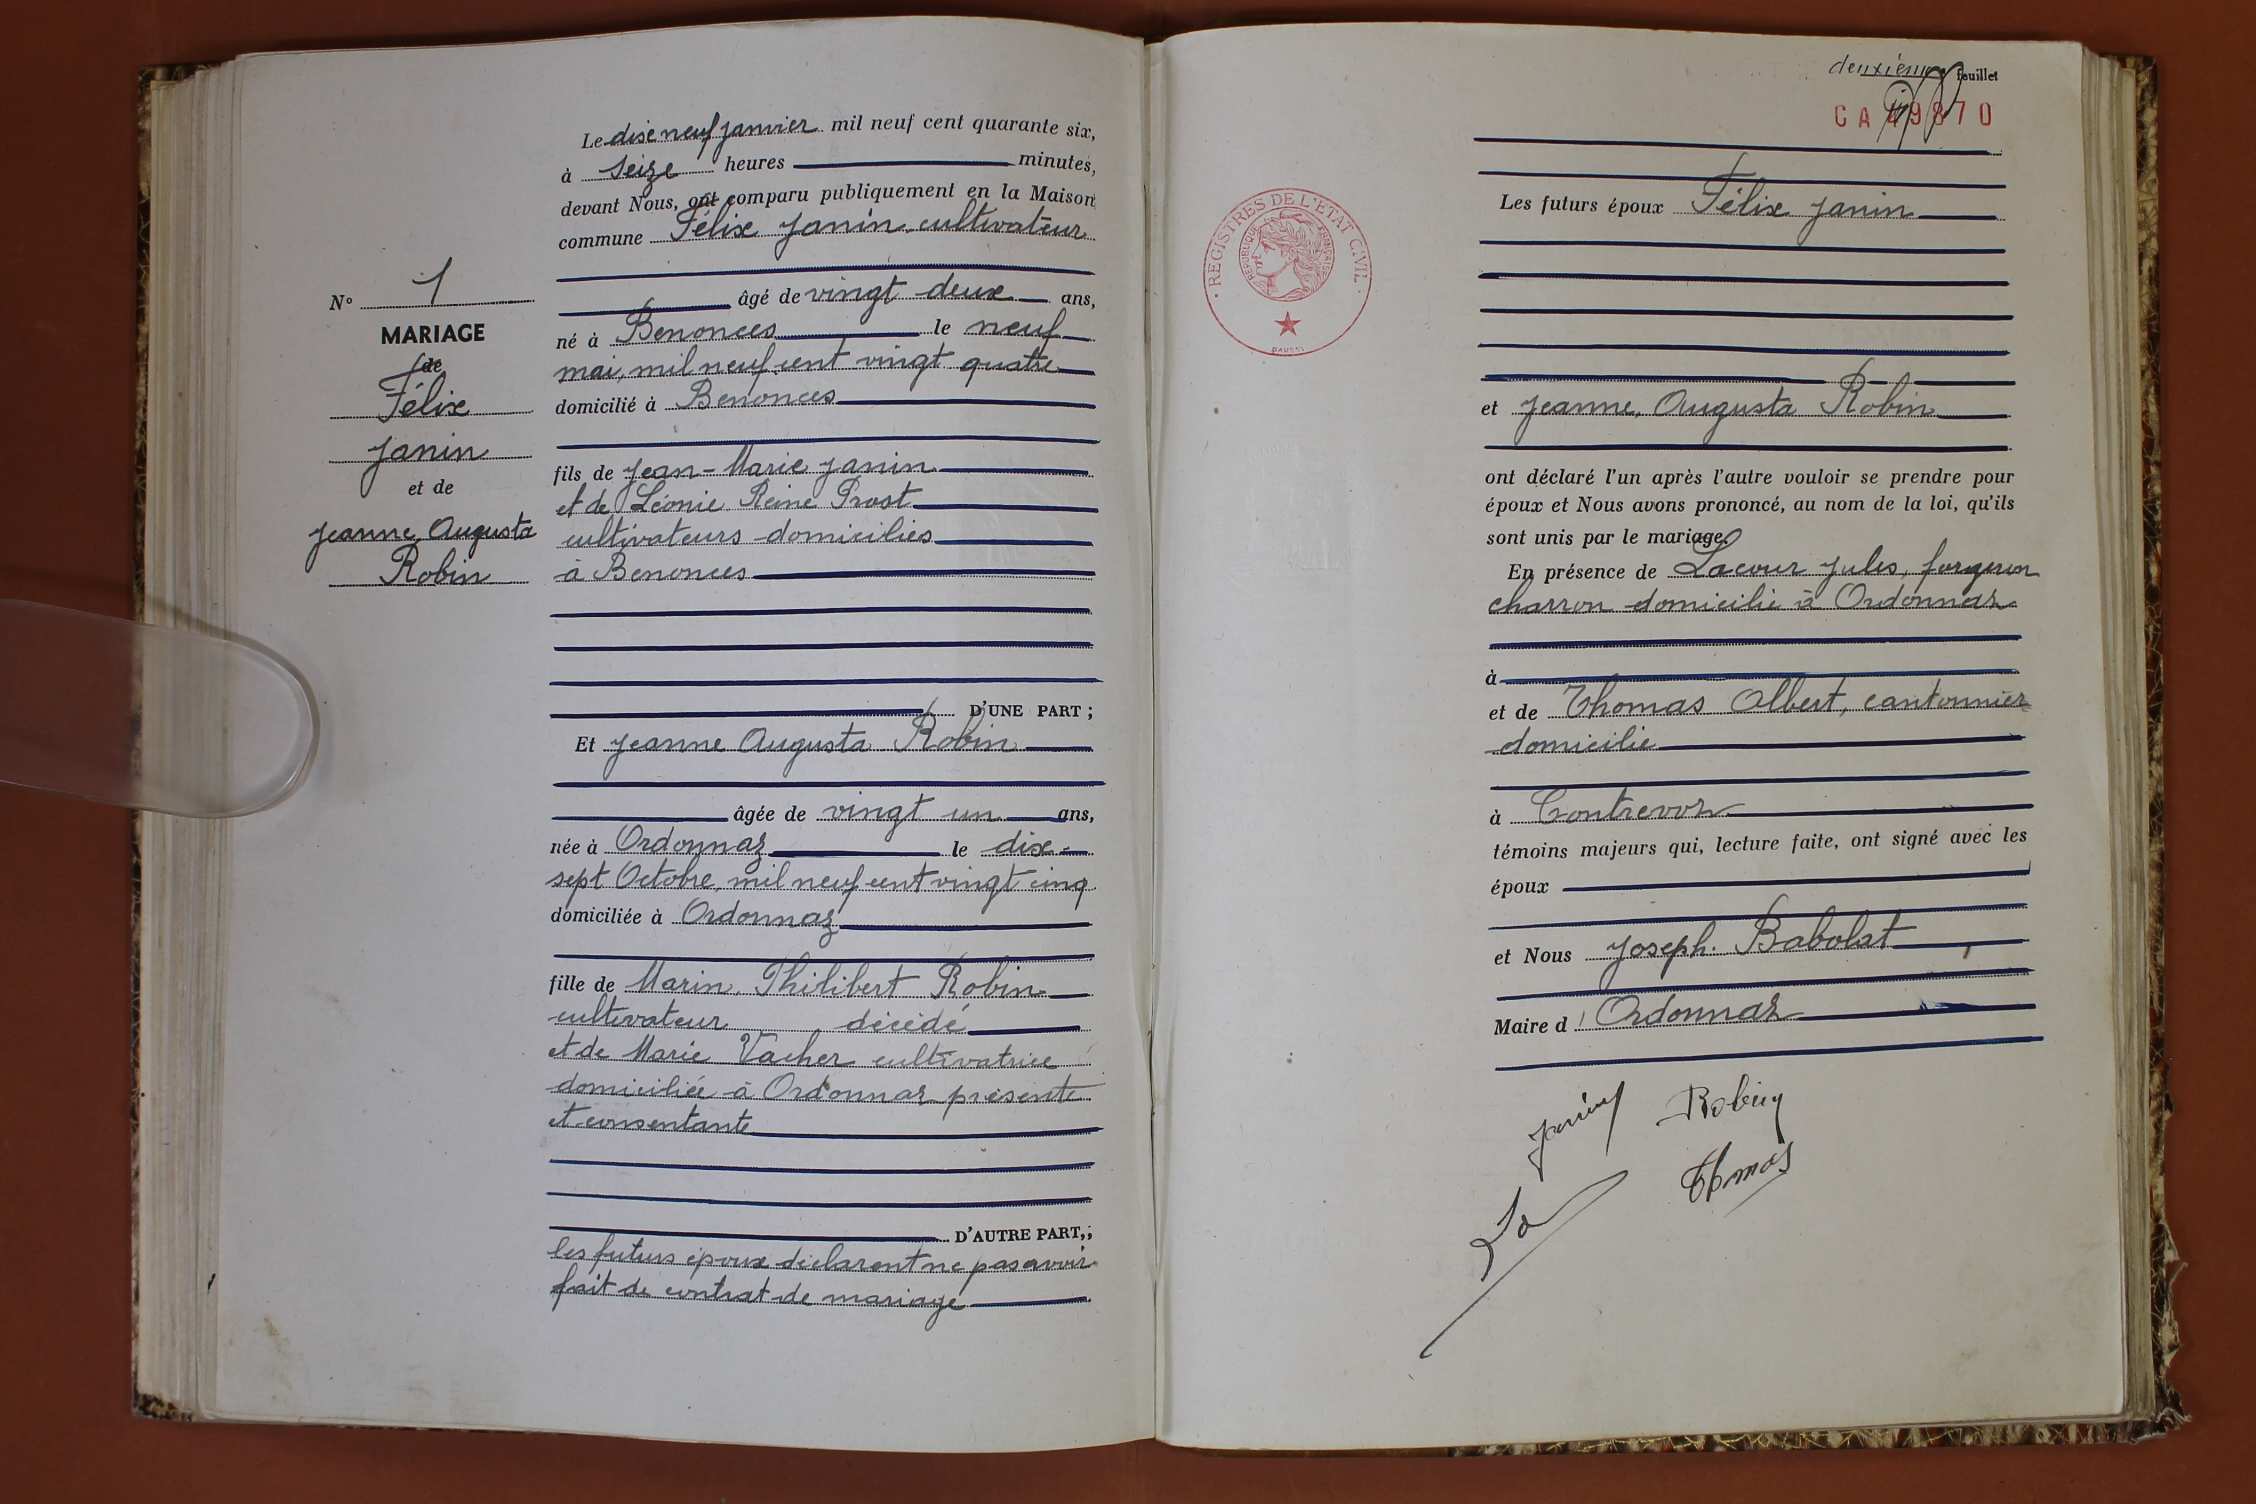 N° 1
MARIAGE
de
Félix
Janin
et de
Jeanne, Augusta
Robin
Le dixe neuf janvier mil neuf cent quarante six,
à seize heures minutes,
devant Nous, ont comparu publiquement en la Maison
commune Félix Janin cultivateur
âgé de vingt deux ans,
né à Benonces le neuf
mai, mil neuf cent vingt quatre
domicilié à Benonces
fils de Jean-Marie Janin
et de Léonie Reine Prost
cultivateurs domiciliés
à Benonces
D'UNE PART ;
Et Jeanne Augusta Robin
âgée de vingt un ans,
née à Ordonnaz le dix-
sept Octobre, mil neuf cent vingt cinq
domiciliée à Ordonnaz
fille de Marin, Philibert Robin
cultivateur décédé
et de Marie Vacher cultivatrice
domiciliée à Ordonnaz présente
et consentante
D'AUTRE PART,;
les futurs époux déclarent ne pas avoir
fait de contrat de mariage
deuxième feuillet
REGISTRES DE L'ETAT CIVIL
REPUBLIQUE FRANÇAISE
Les futurs époux Félix Janin
et Jeanne, Augusta Robin
ont déclaré l'un après l'autre vouloir se prendre pour
époux et Nous avons prononcé, au nom de la loi, qu'ils
sont unis par le mariage.
En présence de Lacour Jules, forgeron
charron domicilié à Ordonnaz
à
et de Thomas Albert, cantonnier
domicilié
à Contrevoz
témoins majeurs qui, lecture faite, ont signé avec les
époux
et Nous Joseph. Babolat
Maire d' Ordonnaz
Janin Robin
Thomas